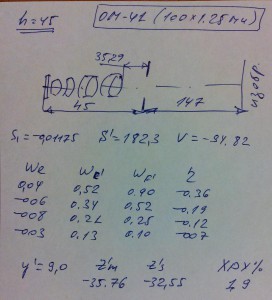 h=45
ОМ-41 (100×1.25мм)
35,29
45
147
S₁=-0,01175 S'=182,3 V=-94.82
0,04 0,52 0,90 -0,36
-0,06 0,34 0,52 -0,19
-0,08 0,25 -0,12
-0,03 0,13 0,10 -0,07
y'=9,0 Z'm Z's ХРХ%
-35.76 -32,55 1,9